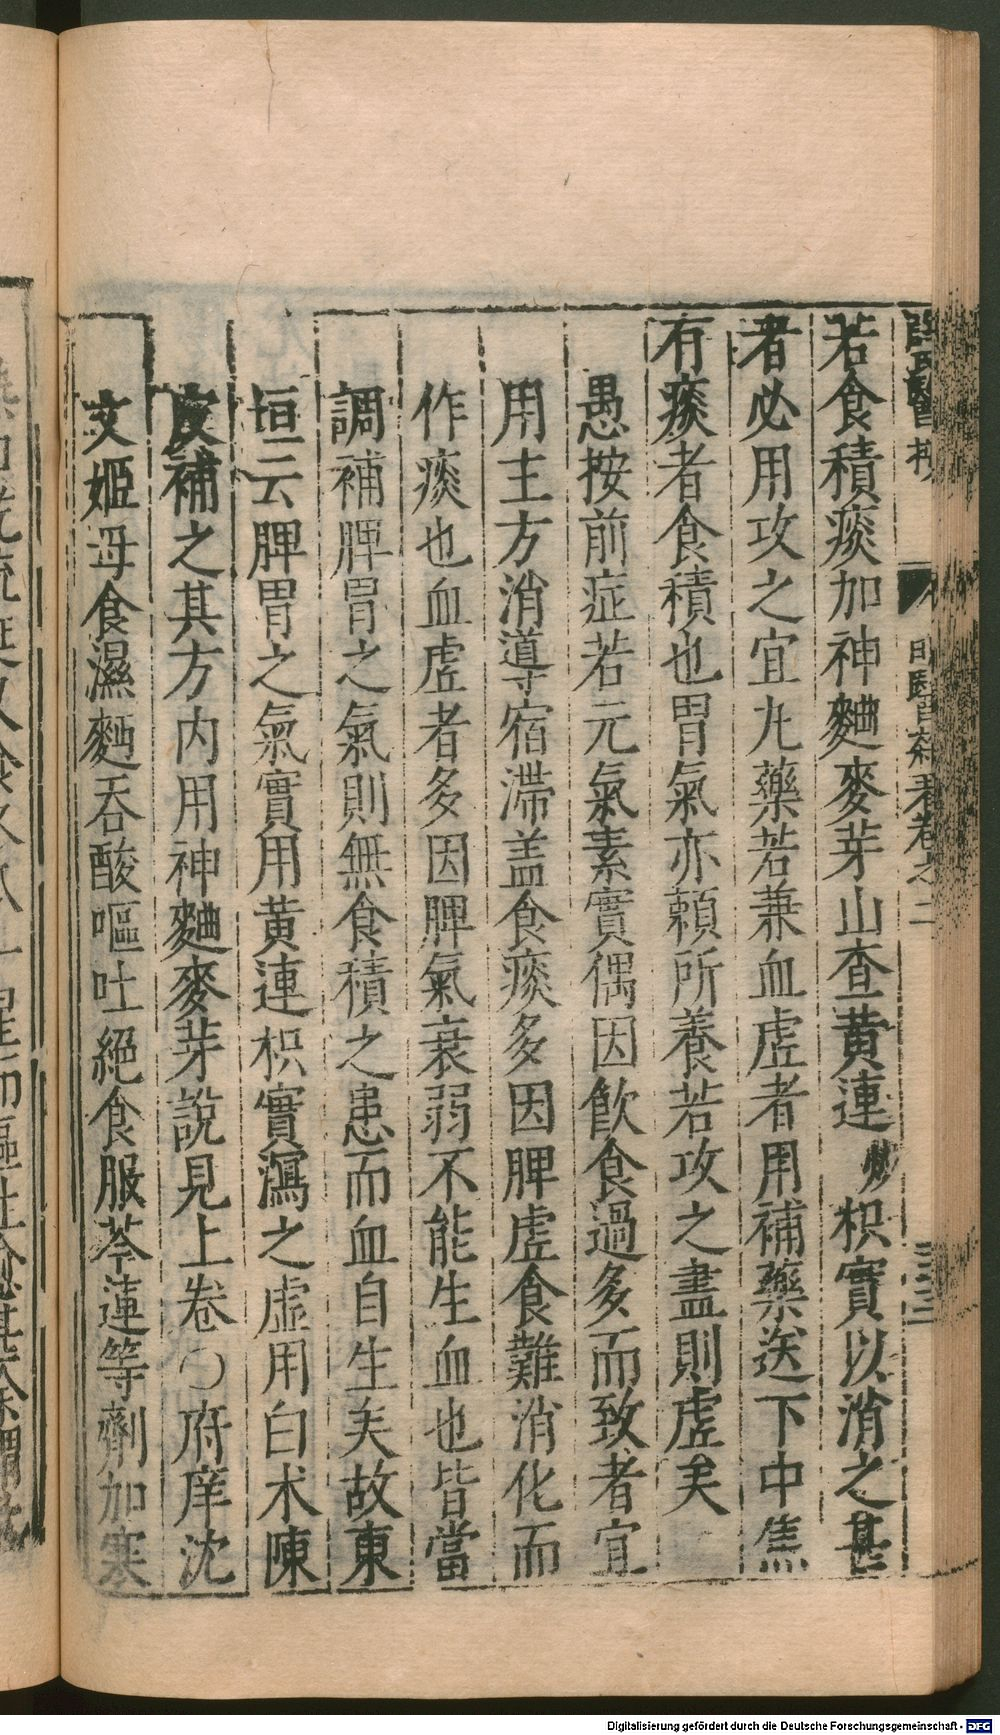 若食積痰加神麯麥芽山查黃連炒枳實以消之甚
者必用攻之宜九藥若兼血虛者用補藥送下中焦
有痰者食積也胃氣亦賴所養若攻之盡則虛矣
愚按前症若元氣素實偶因飲食過多而致者宜
用主方消導宿滯盖食痰多因脾虛食難消化而
作痰也血虛者多因脾氣衰弱不能生血也皆當
調補脾胃之氣則無食積之患而血自生矣故東
垣云脾胃之氣實用黃連枳實瀉之虛用白术陳
皮補之其方内用神麯麥芽說見上卷○府庠沈
文姬母食濕麪吞酸嘔吐絕食服芩連等劑加寒
Digitalisierung gefördert durch die Deutsche Forschungsgemeinschaft - DFG